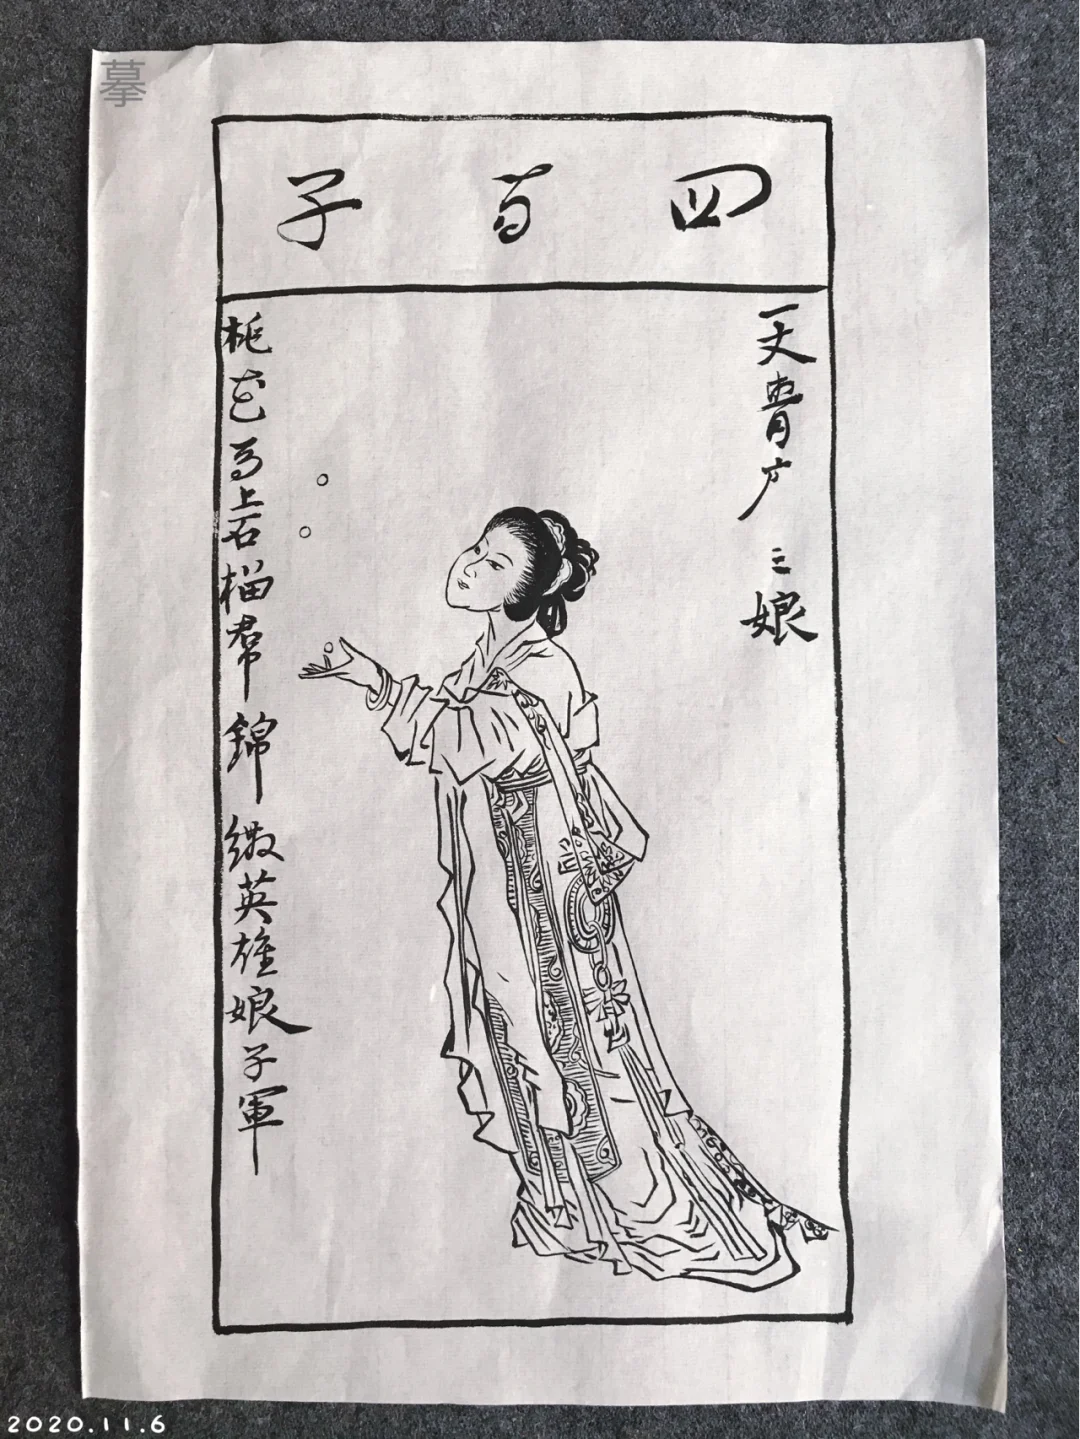 摹
四百子
一丈青户三娘
桃花马上石榴帬錦繖英雄娘子軍
2020.11.6